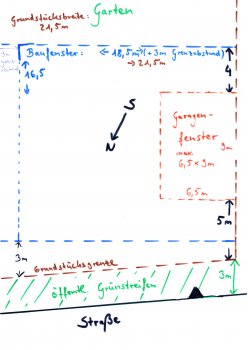 Garten
Grundstücksbreite:
21,5m
Baufenster: ← 18,5m → (+3m Grenzabstand)
→ 21,5m
3m
16,5
4
S
N
Garagen-
fenster
max.
6,5 x 9m
9m
6,5m
5m
3m
Grundstücksgrenze
öffentl. Grünstreifen
3m
Straße